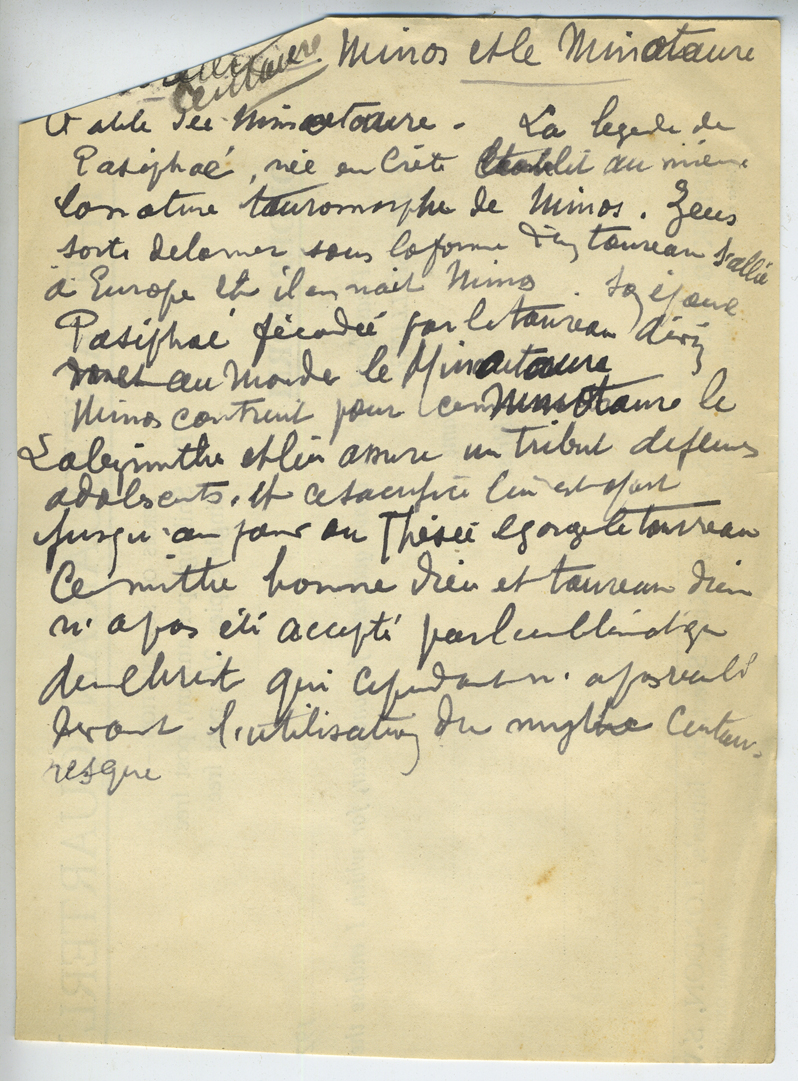 Centaure. Minos et le Minotaure
Minotaure. La legende de
Pasiphaé, née en Crète établit au même
la nature tauromorphe de Minos. Zeus
sorti de la mer sous la forme d'un taureau s'allie
à Europe et il en nait Minos. Son épouse
Pasiphaé fécodée par le taureau divin
met au monde le Minotaure
Minos contruit pour ce Minotaure le
Labyrinthe et lui assure un tribut de jeunes
adolescents. Et ce sacrifice lui est
jusqu'au jour ou Thésée egorge le taureau
Ce mithe homme dieu et taureau dieu
n'a pas été accepté par l'emblématique
du Christ qui cependant n'a pas reculé
devant l'utilisation du mythe Centau-
resque